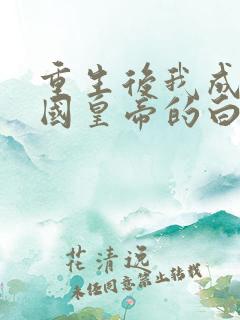 重生後我成
國皇帝的白
花清远
未经同意禁止转载